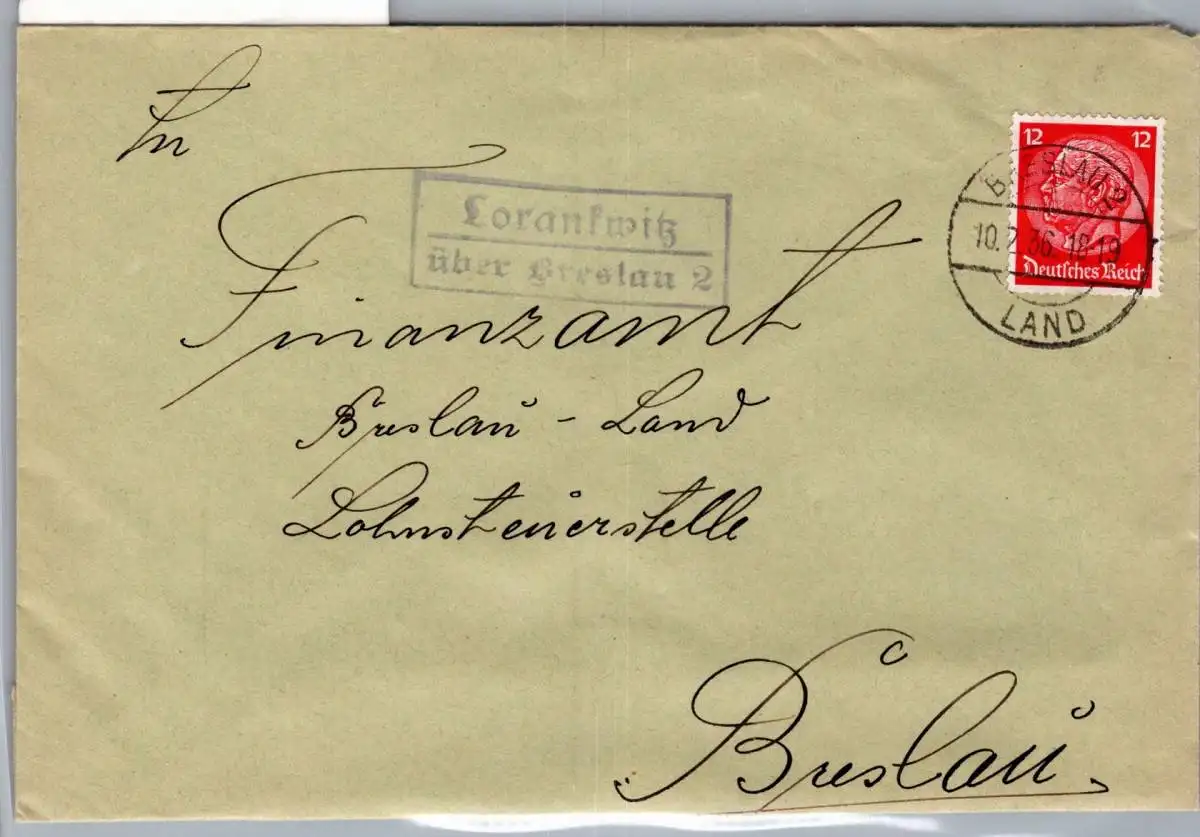 An
Finanzamt
Breslau - Land
Lohnsteuerstelle
Breslau
Lorankwitz
über Breslau 2
12 12
Deutsches Reich
BRESLAU 2
10.7.36.18-19
LAND